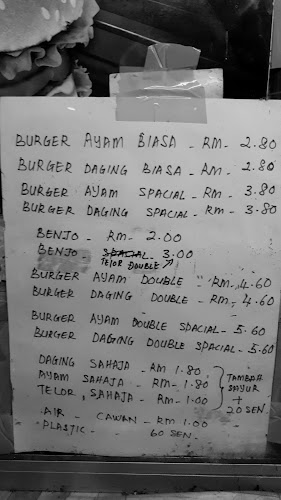 BURGER AYAM BIASA - RM - 2.80
BURGER DAGING BIASA - RM - 2.80
BURGER AYAM SPACIAL - RM - 3.80
BURGER DAGING SPACIAL - RM - 3.80
BENJO - RM - 2.00
BENJO SPACIAL - 3.00
TELOR DOUBLE
BURGER AYAM DOUBLE " RM - 4.60
BURGER DAGING DOUBLE - RM - 4.60
BURGER AYAM DOUBLE SPACIAL - 5.60
BURGER DAGING DOUBLE SPACIAL - 5.60
DAGING SAHAJA - RM 1.80
AYAM SAHAJA - RM - 1.80
TELOR SAHAJA - RM - 1.00
TAMBAH
SAYUR
+
20 SEN
AIR - CAWAN - RM 1.00
PLASTIC - 60 SEN